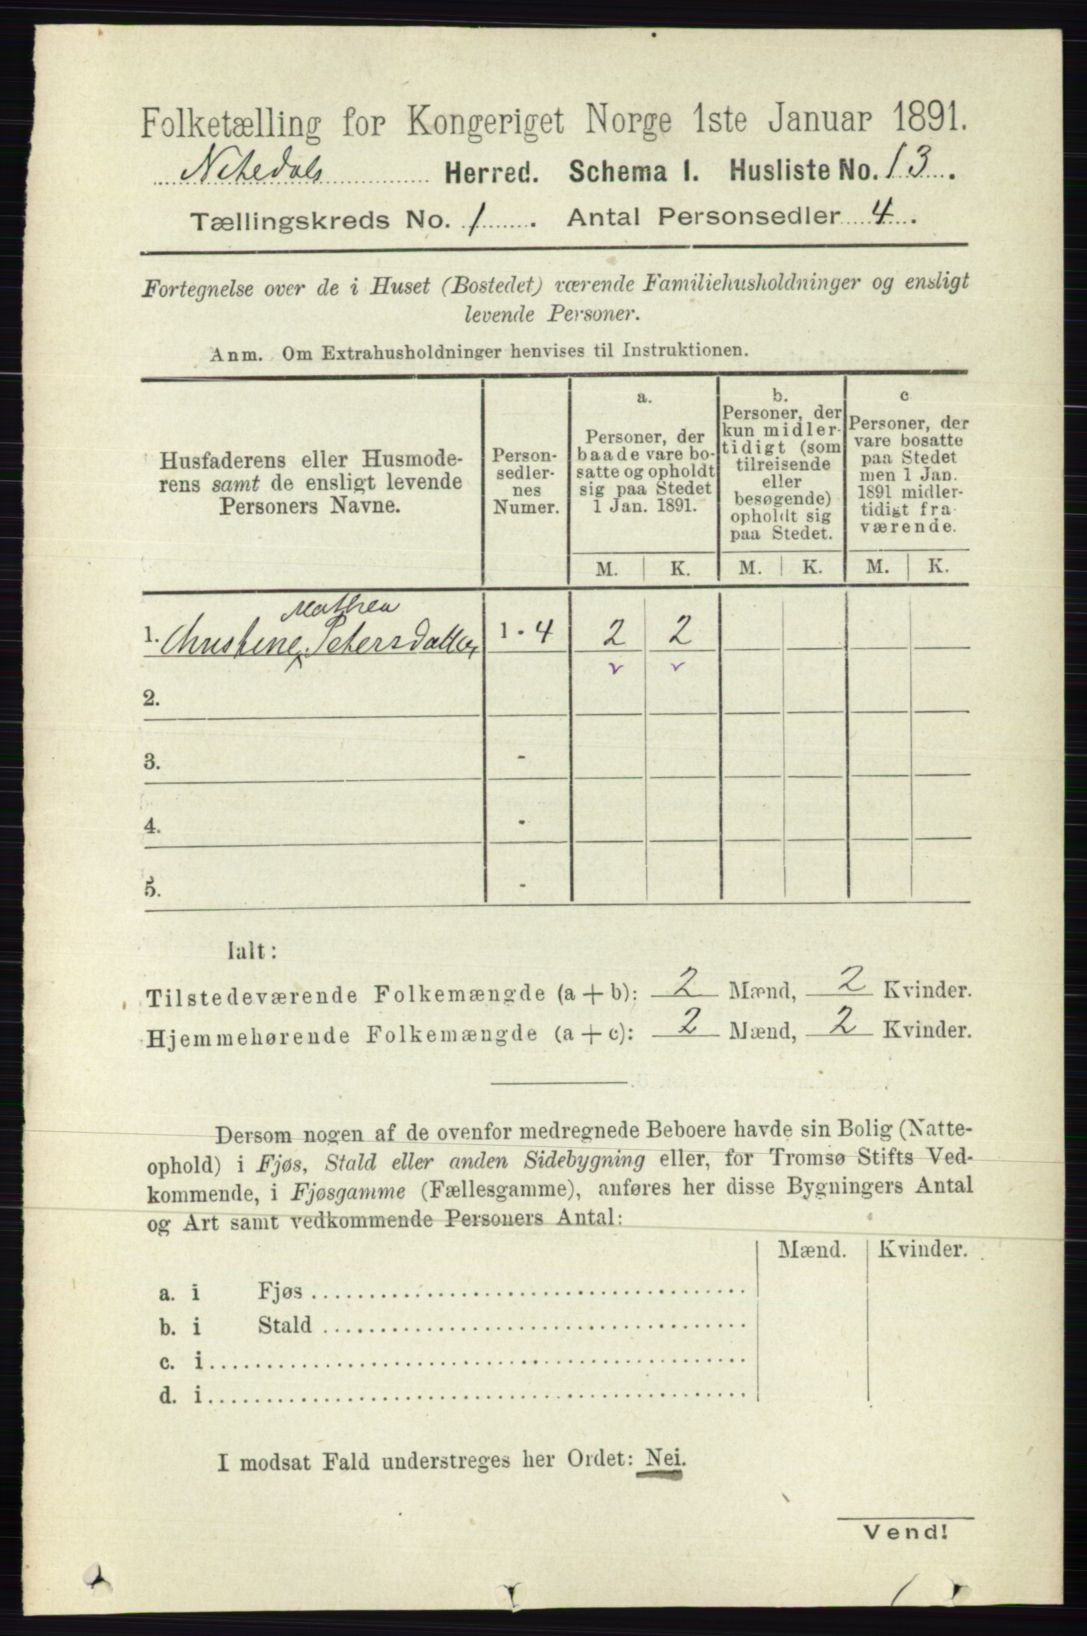 Folketælling for Kongeriget Norge 1ste Januar 1891.
Nitedals Herred. Schema I. Husliste No. 13.
Tællingskreds No. 1. Antal Personsedler 4.
Fortegnelse over de i Huset (Bostedet) værende Familiehusholdninger og ensligt
levende Personer.
Anm. Om Extrahusholdninger henvises til Instruktionen.
Husfaderens eller Husmode-
rens samt de ensligt levende
Personers Navne.
Person-
sedler-
nes
Numer.
a.
Personer, der
baade vare bo-
satte og opholdt
sig paa Stedet
1 Jan. 1891.
b.
Personer, der
kun midler-
tidigt (som
tilreisende
eller
besøgende)
opholdt sig
paa Stedet.
c
Personer, der
vare bosatte
paa Stedet
men 1 Jan.
1891 midler-
tidigt fra-
værende.
M. K. M. K. M. K.
Mathea
1. Christine Petersdatter 1 - 4 2 2
v v
2.
3. -
4. -
5. -
Ialt:
Tilstedeværende Folkemængde (a + b): 2 Mænd, 2 Kvinder.
Hjemmehørende Folkemængde (a + c): 2 Mænd, 2 Kvinder.
Dersom nogen af de ovenfor medregnede Beboere havde sin Bolig (Natte-
ophold) i Fjøs, Stald eller anden Sidebygning eller, for Tromsø Stifts Ved-
kommende, i Fjøsgamme (Fællesgamme), anføres her disse Bygningers Antal
og Art samt vedkommende Personers Antal:
Mænd. Kvinder.
a. i Fjøs
b. i Stald
c. i
d. i
I modsat Fald understreges her Ordet: Nei.
Vend!